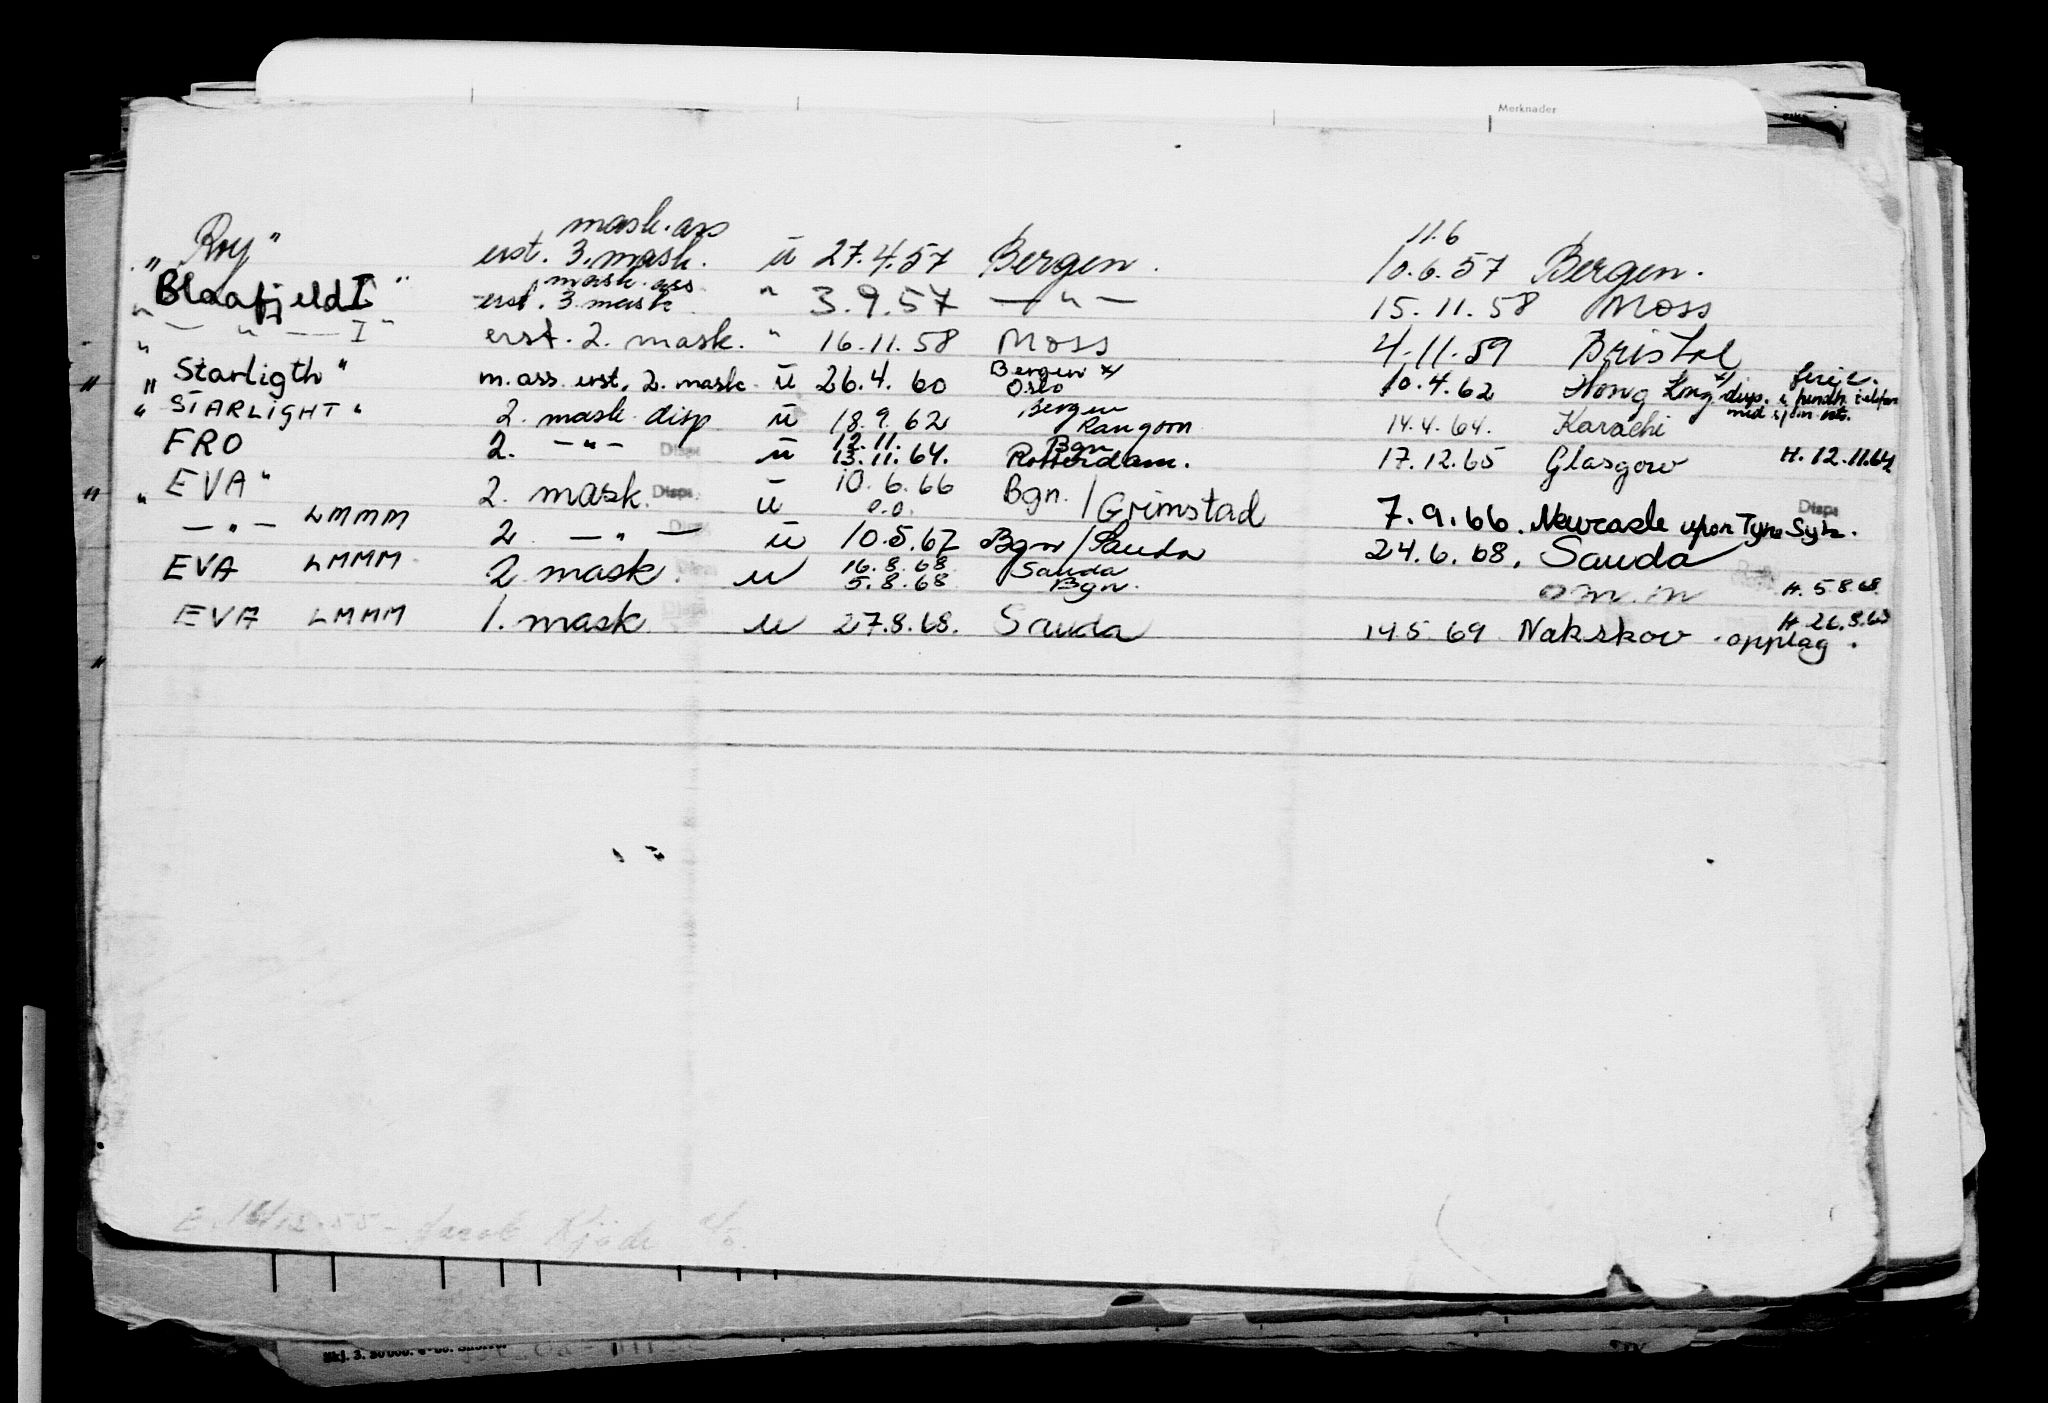 Merknader
mask.ass 11.6
„ Roy" erst. 3. mask. u 27.4.57 Bergen. 10.6.57 Bergen.
mask. ass
„ Blaafjeld I " erst. 3. mask " 3.9.57 — " — 15.11.58 Moss
„ — " — I " erst. 2. mask. " 16.11.58 Moss 4.11.59 Bristol
Bergen x/ ferie.
„ Starligth " m.ass. erst. 2. mask. u 26.4.60 Oslo 10.4.62 Hong Kong x/ disp.
med
" STARLIGHT " 2. mask. disp u 18.9.62 Bergen Rangoon 14.4.64. Karachi
12.11. Bgn
FRO 2. — " — Disp. u 13.11.64. Rotterdam. 17.12.65 Glasgow H. 12.11.64
" EVA " 2. mask. Disp. u 10.6.66 Bgn. / Grimstad 7.9.66. Newcastle upon Tyne Syk. Disp.
o.o.
— " — LMMM 2 — " — Disp u 10.5.67 Bgn / Sauda 24.6.68. Sauda
16.8.68 Sauda
EVA LMMM 2 mask. u 5.8.68 Bgn. o m. m H. 5.8.68.
H. 26.8.68
EVA LMMM 1. mask. Disp. u 27.8.68. Sauda 14.5.69 Nakskov. opplag.